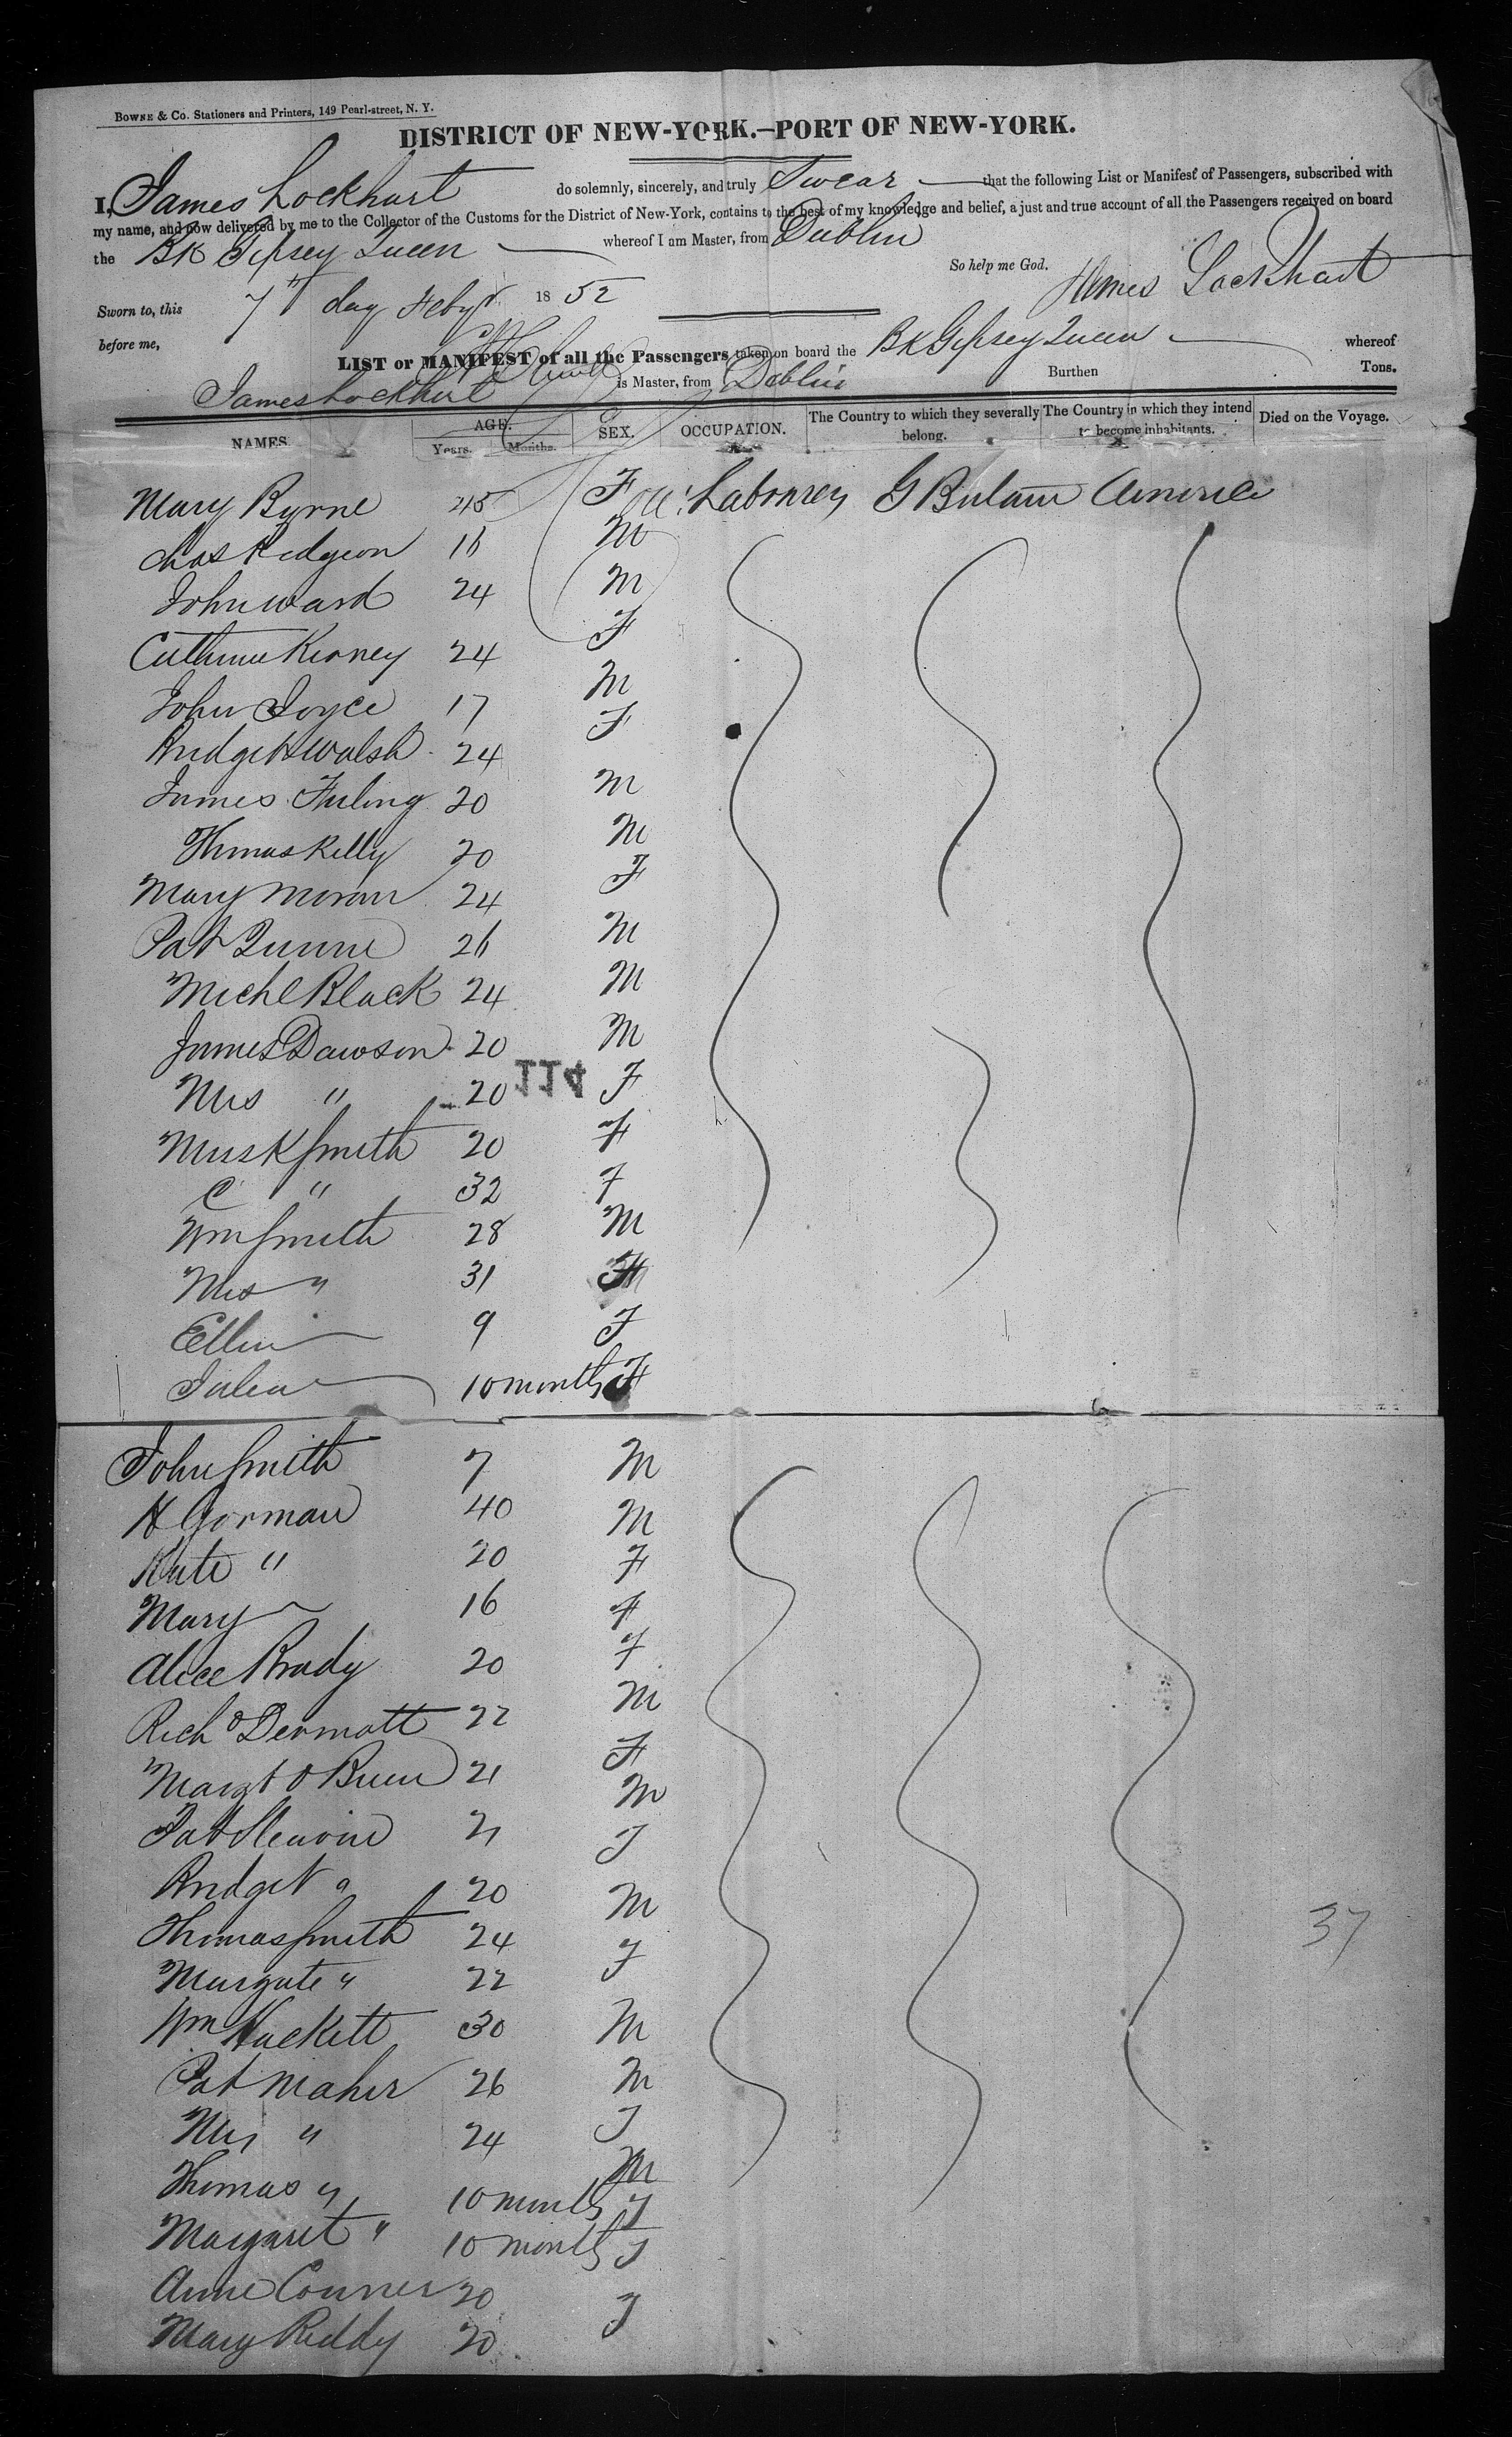 BOWNE & Co. Stationers and Printers, 149 Pearl-street, N. Y.
DISTRICT OF NEW-YORK.—PORT OF NEW-YORK.
I, James Lockhart do solemnly, sincerely, and truly Swear that the following List or Manifest of Passengers, subscribed with
my name, and now delivered by me to the Collector of the Customs for the District of New-York, contains to the best of my knowledge and belief, a just and true account of all the Passengers received on board
the Bk Gipsey Queen whereof I am Master, from Dublin
So help me God. James Lockhart
Sworn to, this 7th day Feby 1852
before me,
LIST or MANIFEST of all the Passengers taken on board the Bk Gipsey Queen whereof
James Lockhart is Master, from Dublin Burthen Tons.
NAMES. AGE. Years. Months. SEX. OCCUPATION. The Country to which they severally belong. The Country in which they intend to become inhabitants. Died on the Voyage.
Mary Byrne 45 F Labourers G Britain America
Chas Pidgeon 16 M
John Ward 24 M
Catherine Kerney 24 F
John Joyce 17 M
Bridget Walsh 24 F
James 20 M
Thomas Kelly 20 M
Mary Moran 24 F
Pat Quinne 26 M
Michl Black 24 M
James Dawson 20 M
114
Mrs " 20 F
Smith 20 F
C " 32 F
Wm Smith 28 M
Mrs " 31 F
Ellen 9 F
Julia 10 months F
John Smith 7 M
H Gorman 40 M
Kate " 20 F
Mary 16 F
Alice Brady 20 F
Rich Dermott 22 M
Margt O Brien 21 F
Pat 21 M
Bridget " 20 F
Thomas Smith 24 M
Margate " 22 F
Wm Hackett 30 M
Pat Maher 26 M
Mrs " 24 F
Thomas " 10 months M
Margaret " 10 months F
Anne Conner 20 F
Mary Reddy 20 F
37